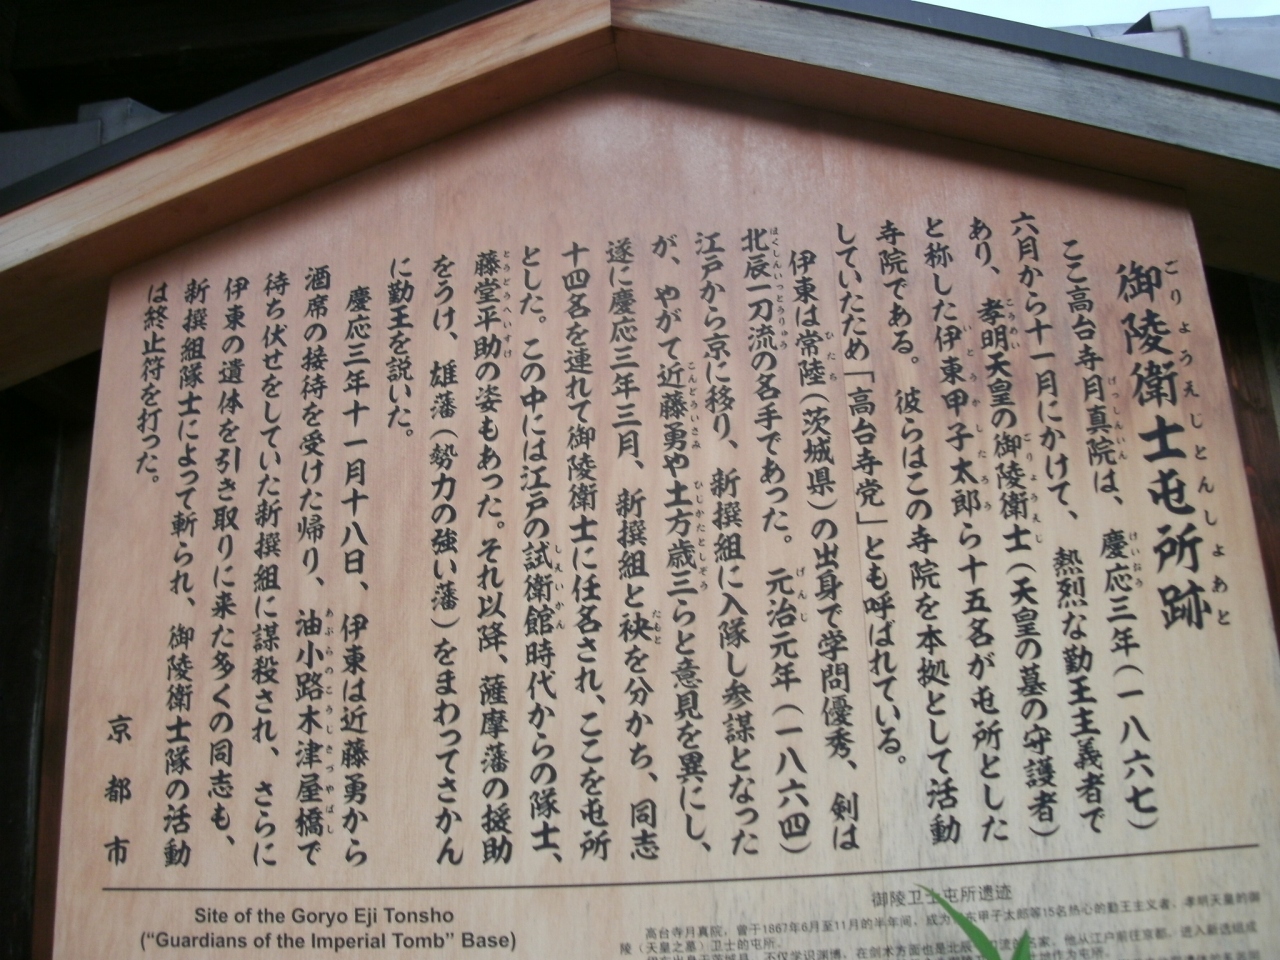 御陵衛士屯所跡
ごりょうえじとんしょあと
ここ高台寺月真院は、慶応三年（一八六七）
げっしんいん
けいおう
六月から十一月にかけて、熱烈な勤王主義者で
あり、孝明天皇の御陵衛士（天皇の墓の守護者）
こうめい
ごりょうえじ
と称した伊東甲子太郎ら十五名が屯所とした
いとうかしたろう
寺院である。彼らはこの寺院を本拠として活動
していたため「高台寺党」とも呼ばれている。
伊東は常陸（茨城県）の出身で学問優秀、剣は
ひたち
北辰一刀流の名手であった。元治元年（一八六四）
ほくしんいっとうりゅう
げんじ
江戸から京に移り、新撰組に入隊し参謀となった
が、やがて近藤勇や土方歳三らと意見を異にし、
こんどういさみ
ひじかたとしぞう
遂に慶応三年三月、新撰組と袂を分かち、同志
たもと
十四名を連れて御陵衛士に任名され、ここを屯所
とした。この中には江戸の試衛館時代からの隊士、
しえいかん
藤堂平助の姿もあった。それ以降、薩摩藩の援助
とうどうへいすけ
をうけ、雄藩（勢力の強い藩）をまわってさかん
に勤王を説いた。
慶応三年十一月十八日、伊東は近藤勇から
酒席の接待を受けた帰り、油小路木津屋橋で
あぶらのこうじきづやばし
待ち伏せをしていた新撰組に謀殺され、さらに
伊東の遺体を引き取りに来た多くの同志も、
新撰組隊士によって斬られ、御陵衛士隊の活動
は終止符を打った。
京都市
Site of the Goryo Eji Tonsho
(“Guardians of the Imperial Tomb” Base)
御陵卫士屯所遗迹
高台寺月真院，曾于1867年6月至11月的半年间，成为 东甲子太郎等15名热心的勤王主义者、孝明天皇的御
陵（天皇之墓）卫士的屯所。